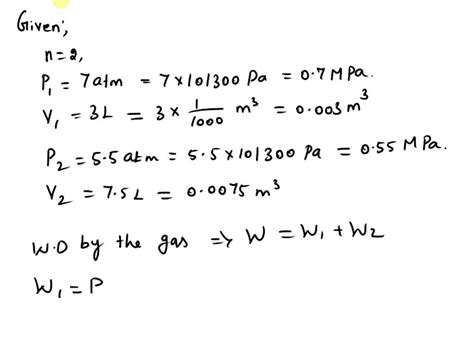 Given;
n=2,
P₁ = 7 atm = 7×101300 Pa = 0.7 MPa.
V₁ = 3L = 3 × 1/1000 m³ = 0.003 m³
P₂ = 5.5 atm = 5.5×101300 Pa = 0.55 MPa.
V₂ = 7.5 L = 0.0075 m³
W.D by the gas => W = W₁ + W₂
W₁ = P